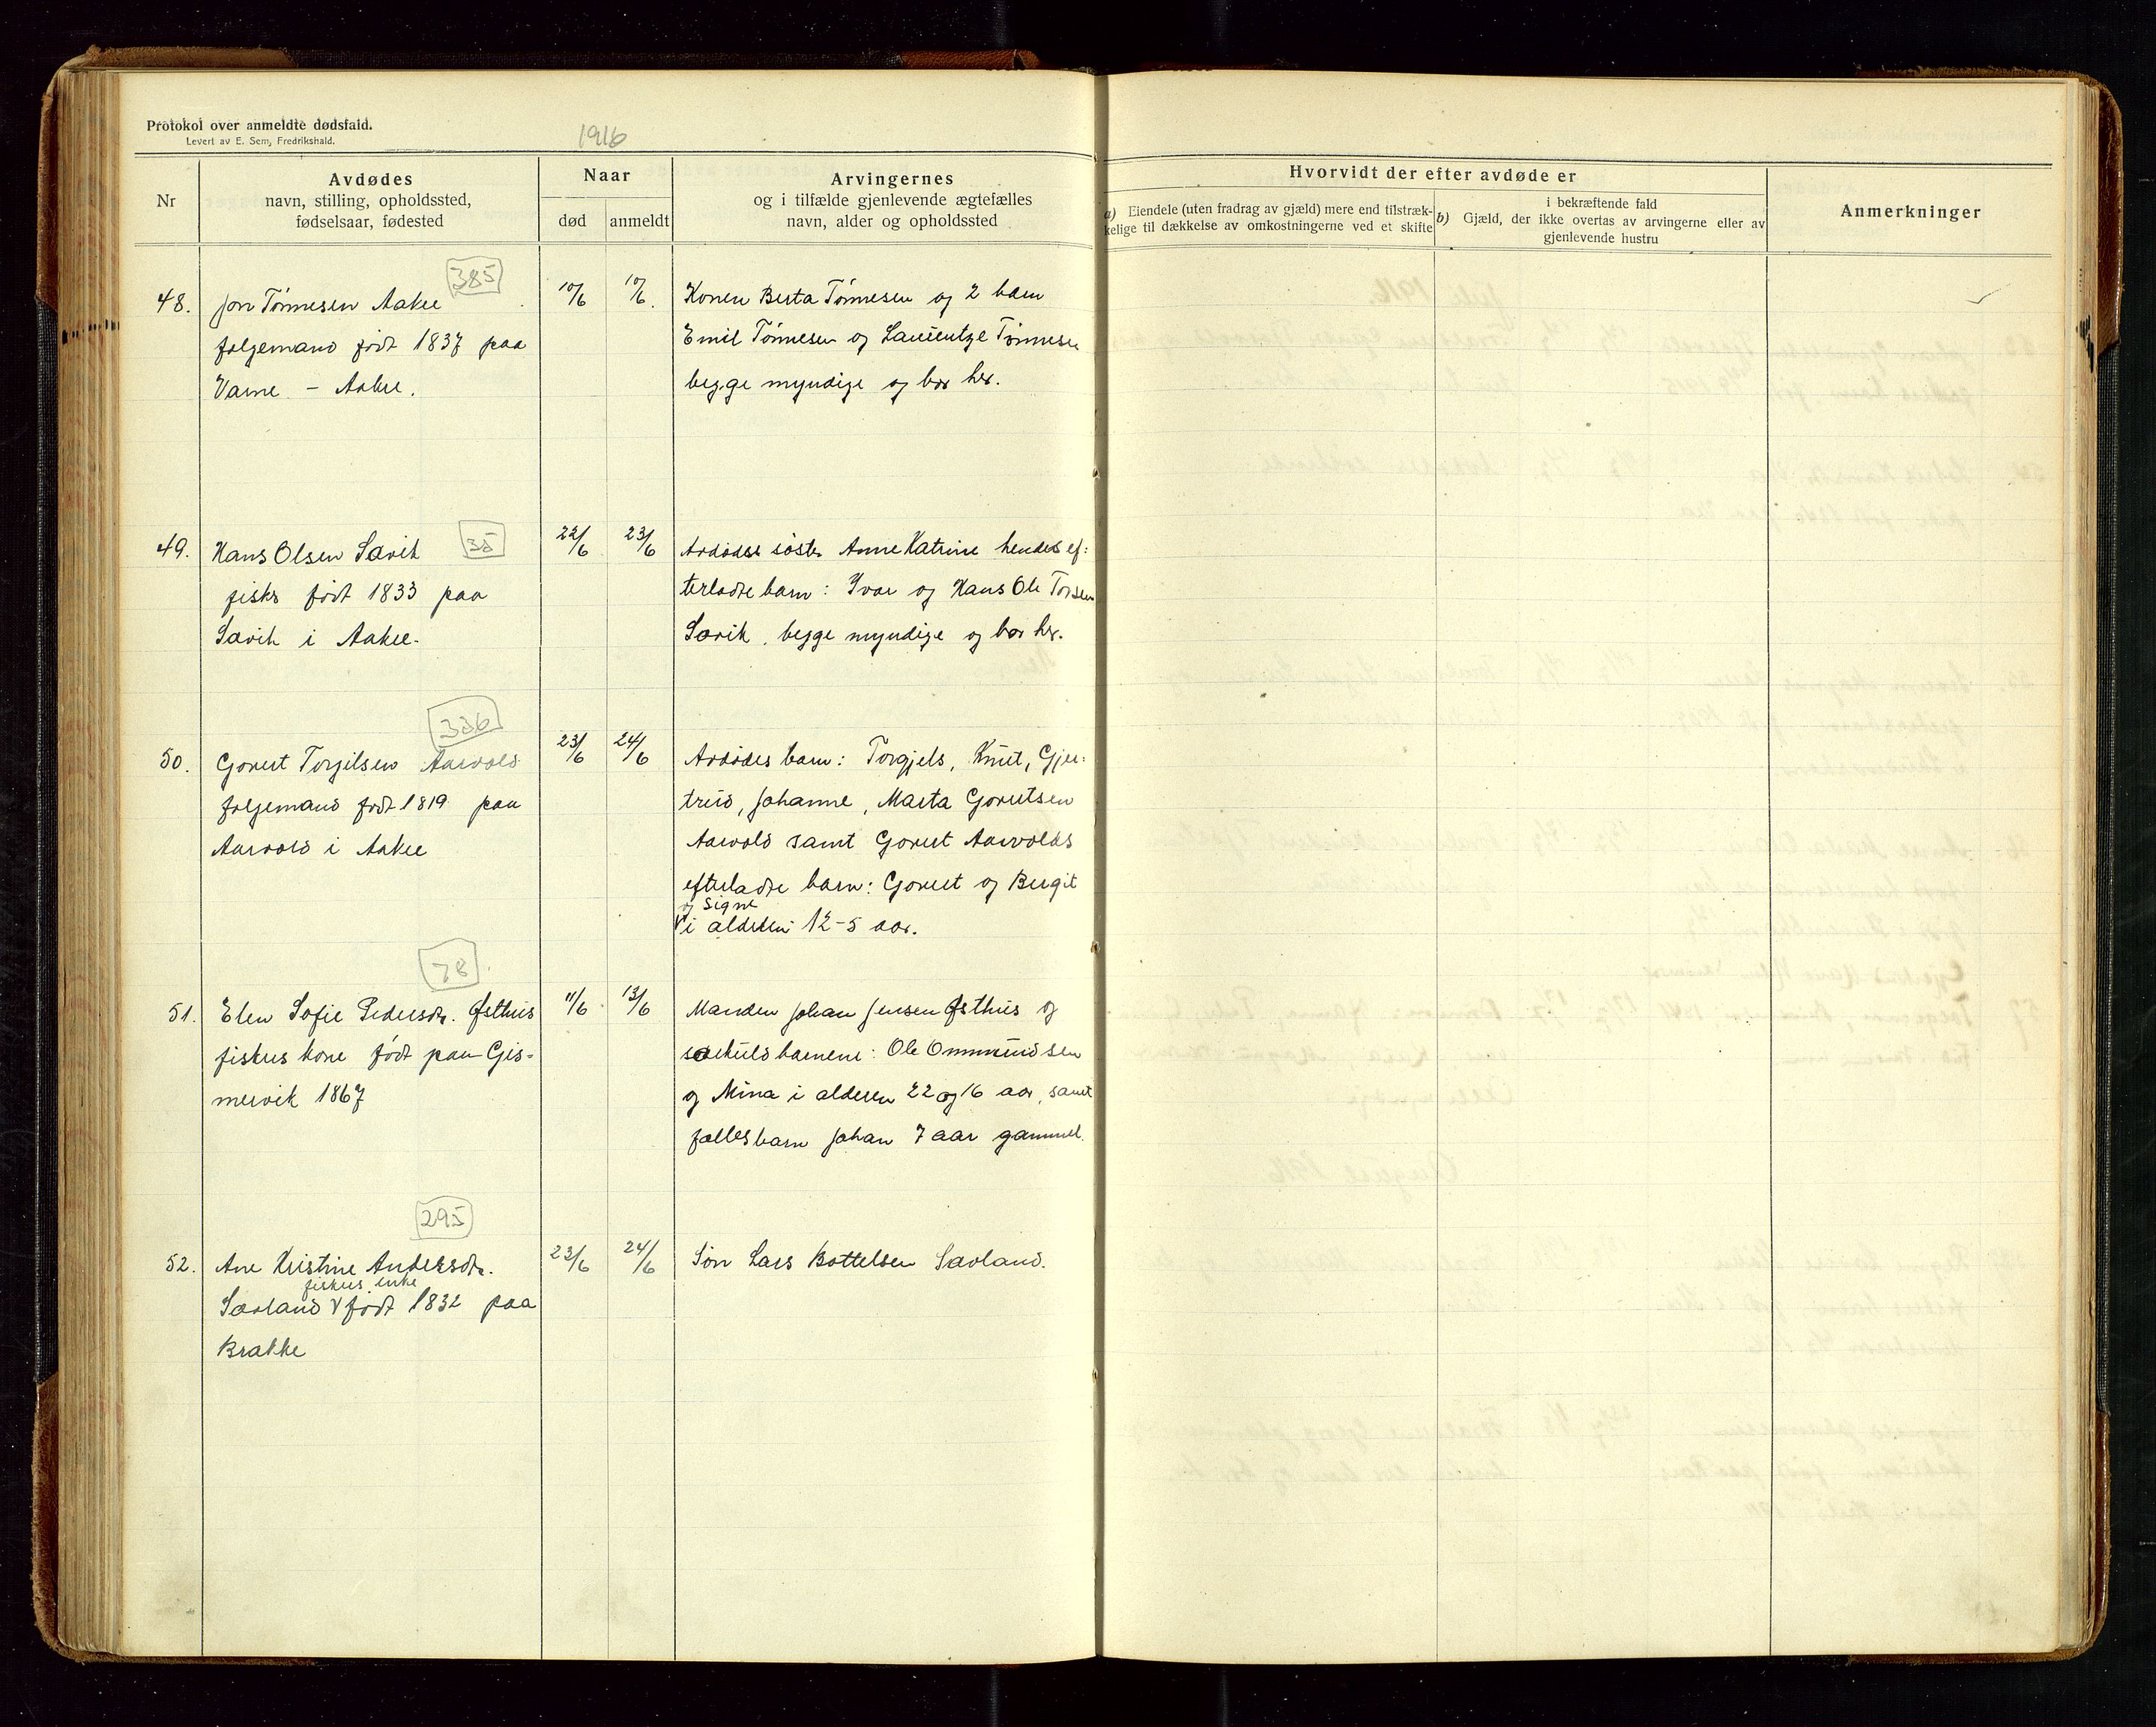 Protokol over anmeldte dødsfald.
Levert av E. Sem, Fredrikshald.
1916
Nr
Avdødes
navn, stilling, opholdssted,
fødselsaar, fødested
Naar
død
anmeldt
Arvingernes
og i tilfælde gjenlevende ægtefælles
navn, alder og opholdssted
Hvorvidt der efter avdøde er
a) Eiendele (uten fradrag av gjæld) mere end tilstræk-
kelige til dækkelse av omkostningerne ved et skifte
i bekræftende fald
b) Gjæld, der ikke overtas av arvingerne eller av
gjenlevende hustru
Anmerkninger
385
48. Jon Tønnesen Aakre
folgemand født 1837 paa
Varne - Aakre.
10/6 10/6.
Konen Berta Tønnesen og 2 barn
Emil Tønnesen og Laurentze Tønnesen
begge myndige og bor her.
35
49. Hans Olsen Sævik
fisker født 1833 paa
Sævik i Aakre.
22/6 23/6
Avdødes søster Anne Katrine hendes ef:
terladte barn: Ivar og Hans Ole Torsen
Sævik, begge myndige og bor her.
336
50. Govert Torgilsen Aarvold
folgemand født 1819 paa
Aarvold i Aakre
23/6 24/6
Avdødes barn: Torgjels, Knut, Gjer:
trud, Johanne, Marta Govertsen
Aarvold samt Govert Aarvolds
efterladte barn: Govert og Bergit
og Signe
V i alderen 12-5 aar.
78
51. Elen Sofie Pedersdr. Østhus
fiskers kone født paa Gis-
mervik 1867
11/6 13/6
Manden Johan Jensen Østhus og
særkuldbarnene: Ole Ommundsen
og Mina i alderen 22 og 16 aar, samt
fællesbarn Johan 7 aar gammel.
295
52. Ane Kristine Andersdr.
fiskers enke
Sævland V født 1832 paa
Brække
23/6 24/6
Søn Lars Bottelsen Sævland.